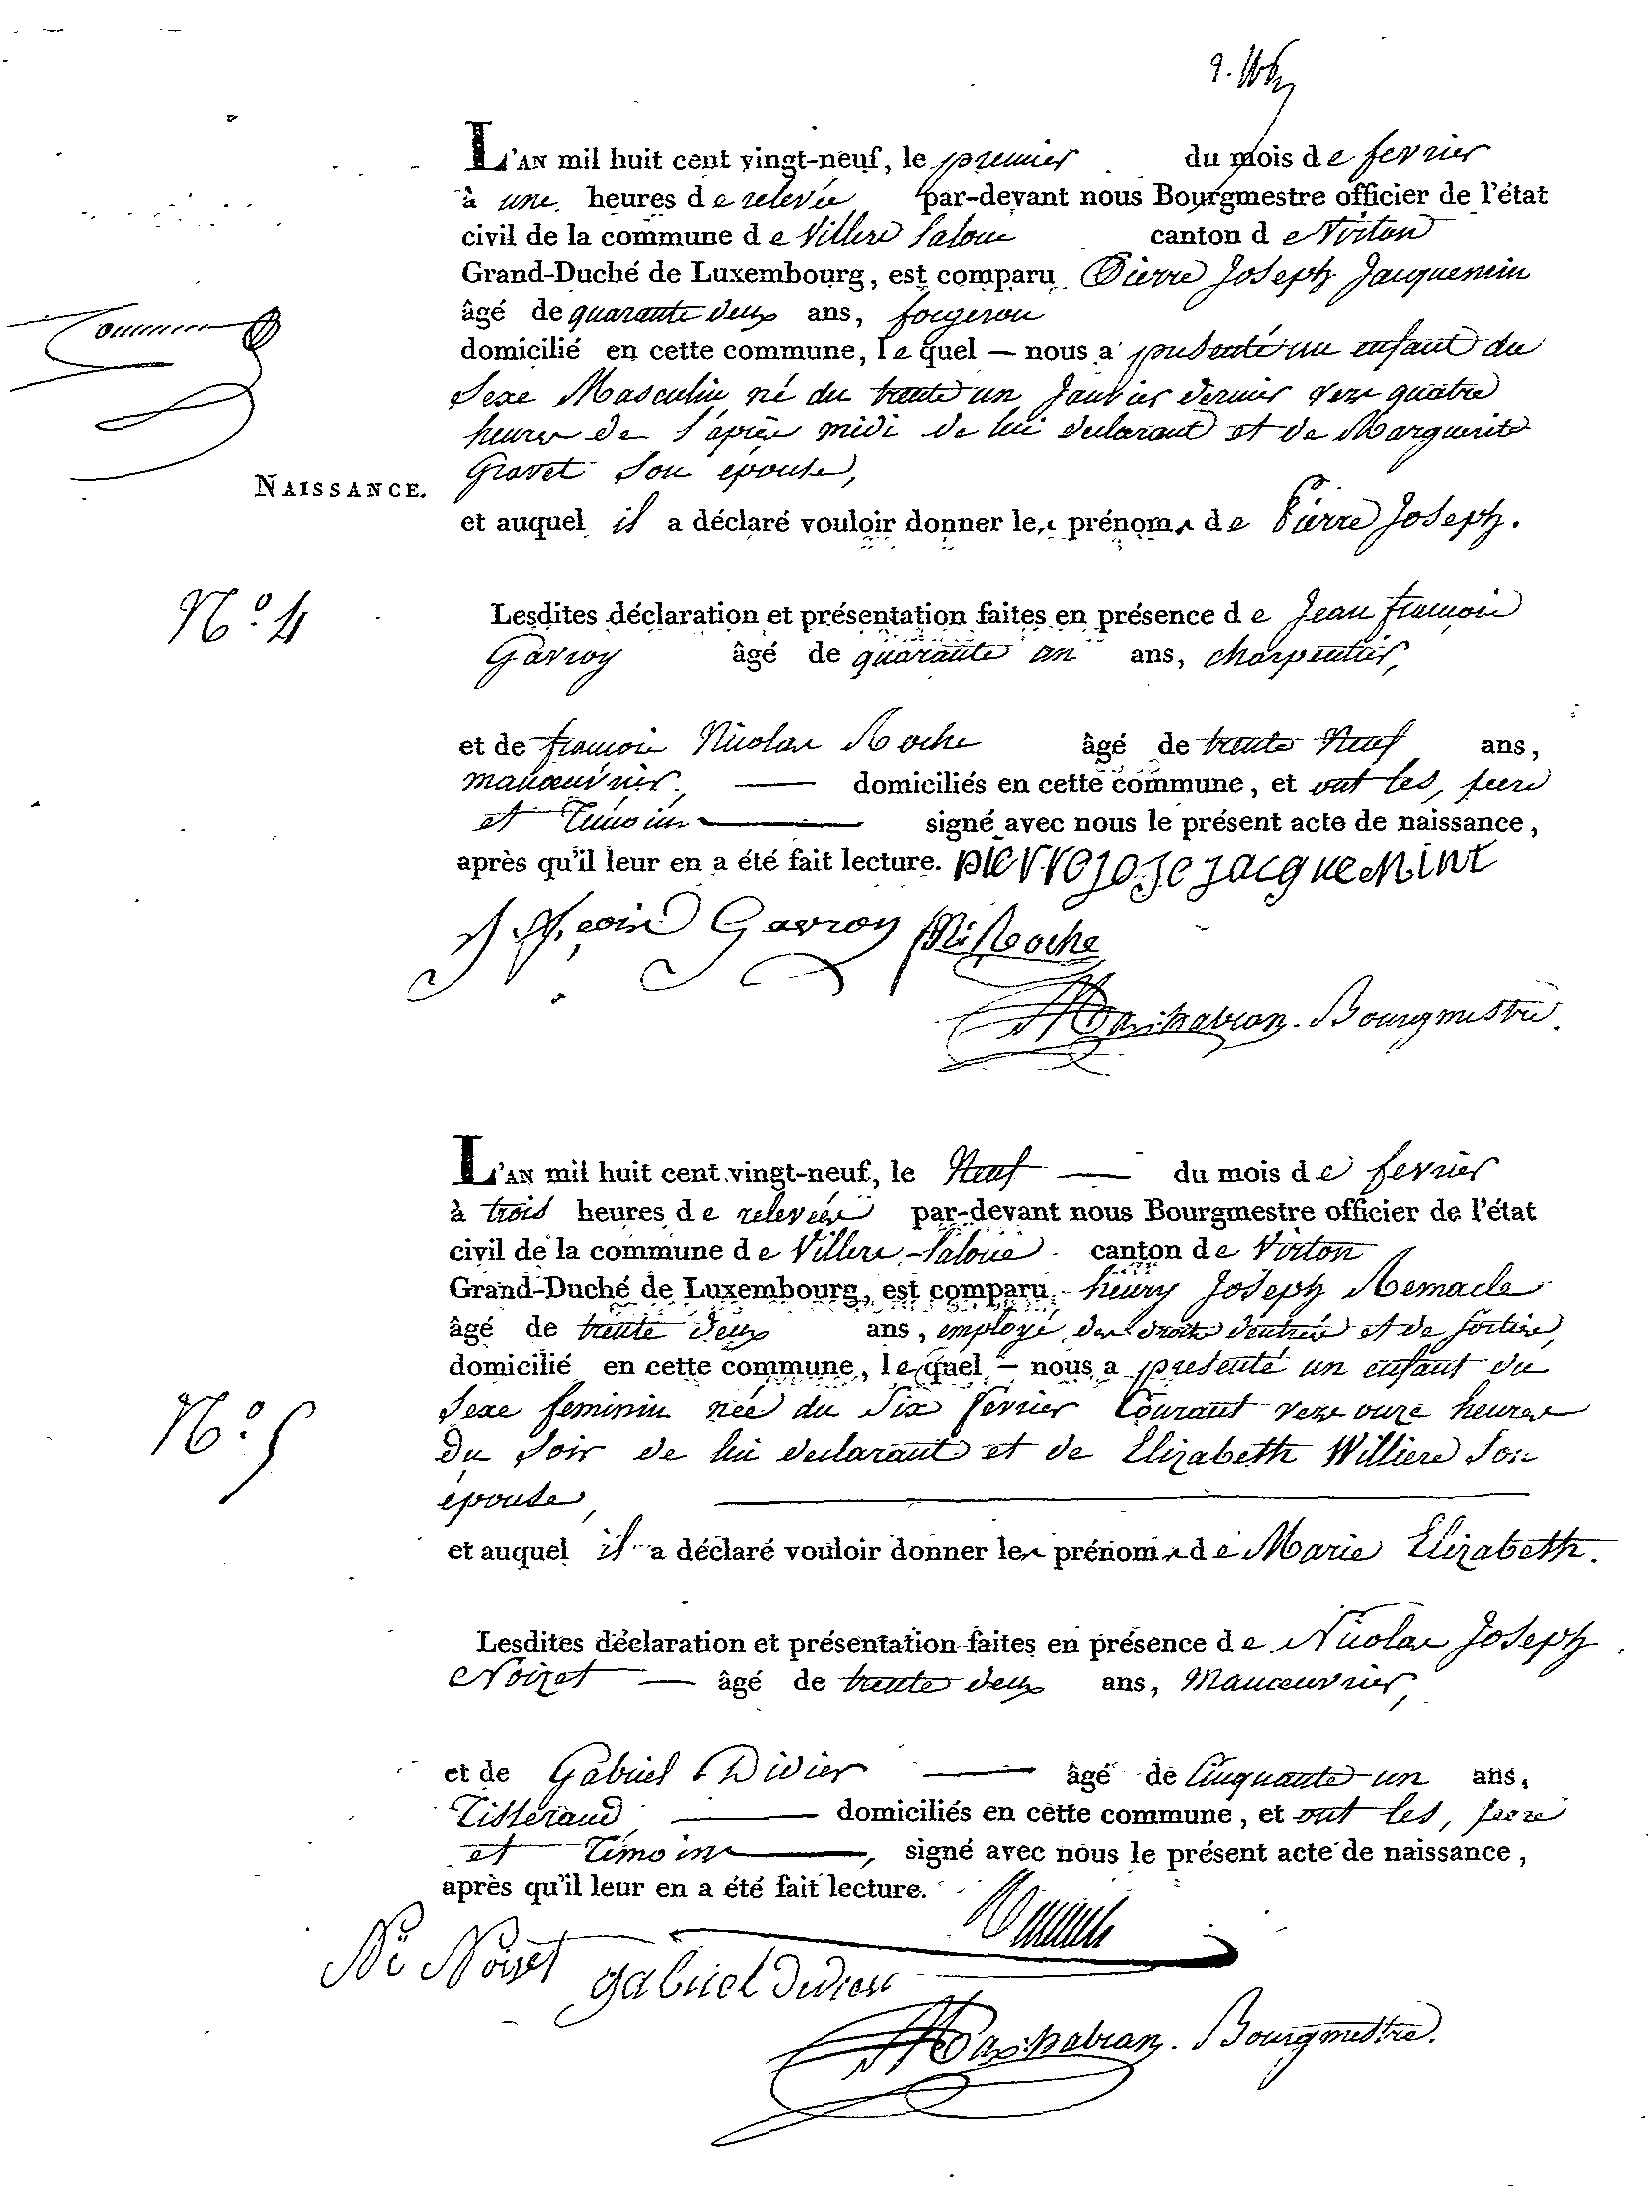 L'AN mil huit cent vingt-neuf, le premier du mois de fevrier
à une heures de relevée par-devant nous Bourgmestre officier de l'état
civil de la commune de Villers la loue canton de Virton
Grand-Duché de Luxembourg, est comparu Pierre Joseph Jacquemin
âgé de quarante deux ans, forgeron
domicilié en cette commune, lequel — nous a présenté un enfant du
Sexe Masculin né du trente un Janvier dernier vers quatre
heures de l'après midi de lui déclarant et de Marguerite
Gravet Son épouse,
NAISSANCE.
et auquel il a déclaré vouloir donner les prénoms de Pierre Joseph.
N.o 4
Lesdites déclaration et présentation faites en présence de Jean françois
Gavroy âgé de quarante un ans, charpentier,
et de françois Nicolas Roche âgé de trente Neuf ans,
manoeuvrier, — domiciliés en cette commune, et ont les, pere
et Témoins — signé avec nous le présent acte de naissance,
après qu'il leur en a été fait lecture. pierre jose jacqueMint
Gavroy Roche
Bourgmestre.
L'AN mil huit cent vingt-neuf, le Neuf — du mois de fevrier
à trois heures de relevée par-devant nous Bourgmestre officier de l'état
civil de la commune de Villers-laloue canton de Virton
Grand-Duché de Luxembourg, est comparu henry Joseph Remacle
âgé de trente deux ans, employé des droits d'entrée et de sorties,
domicilié en cette commune, lequel — nous a présenté un enfant du
Sexe feminin née du Six fevrier Courant vers onze heures
Du Soir de lui declarant et de Elizabeth Williere Son
N.o 5
épouse, —
et auquel il a déclaré vouloir donner les prénoms de Marie Elizabeth.
Lesdites déclaration et présentation faites en présence de Nicolas Joseph
Noizet — âgé de trente deux ans, Manoeuvrier,
et de Gabriel Didier — âgé de Cinquante un ans,
Tisserand, — domiciliés en cette commune, et ont les, pere
et Témoins —, signé avec nous le présent acte de naissance,
après qu'il leur en a été fait lecture.
Ns Noizet gabriel didier
Bourgmestre.